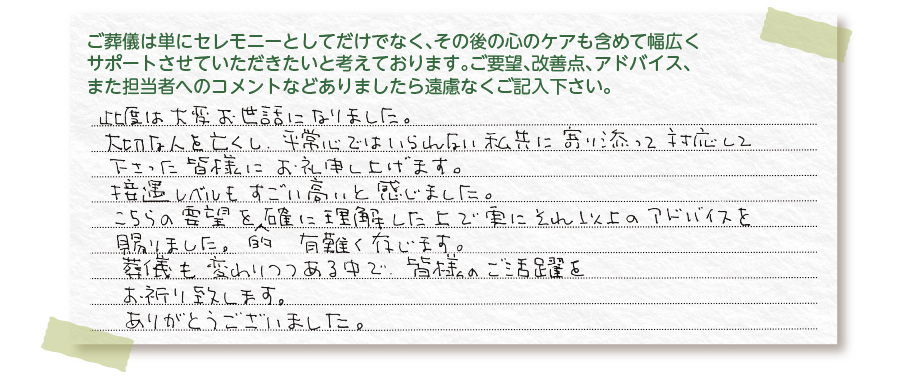 ご葬儀は単にセレモニーとしてだけでなく、その後の心のケアも含めて幅広く
サポートさせていただきたいと考えております。ご要望、改善点、アドバイス、
また担当者へのコメントなどありましたら遠慮なくご記入下さい。
此度は大変お世話になりました。
大切な人を亡くし、平常心ではいられない私共に寄り添って対応して
下さった皆様にお礼申し上げます。
接遇レベルもすごい高いと感じました。
こちらの要望を的確に理解した上で更にそれ以上のアドバイスを
賜りました。有難く存じます。
葬儀も変わりつつある中で皆様のご活躍を
お祈り致します。
ありがとうございました。